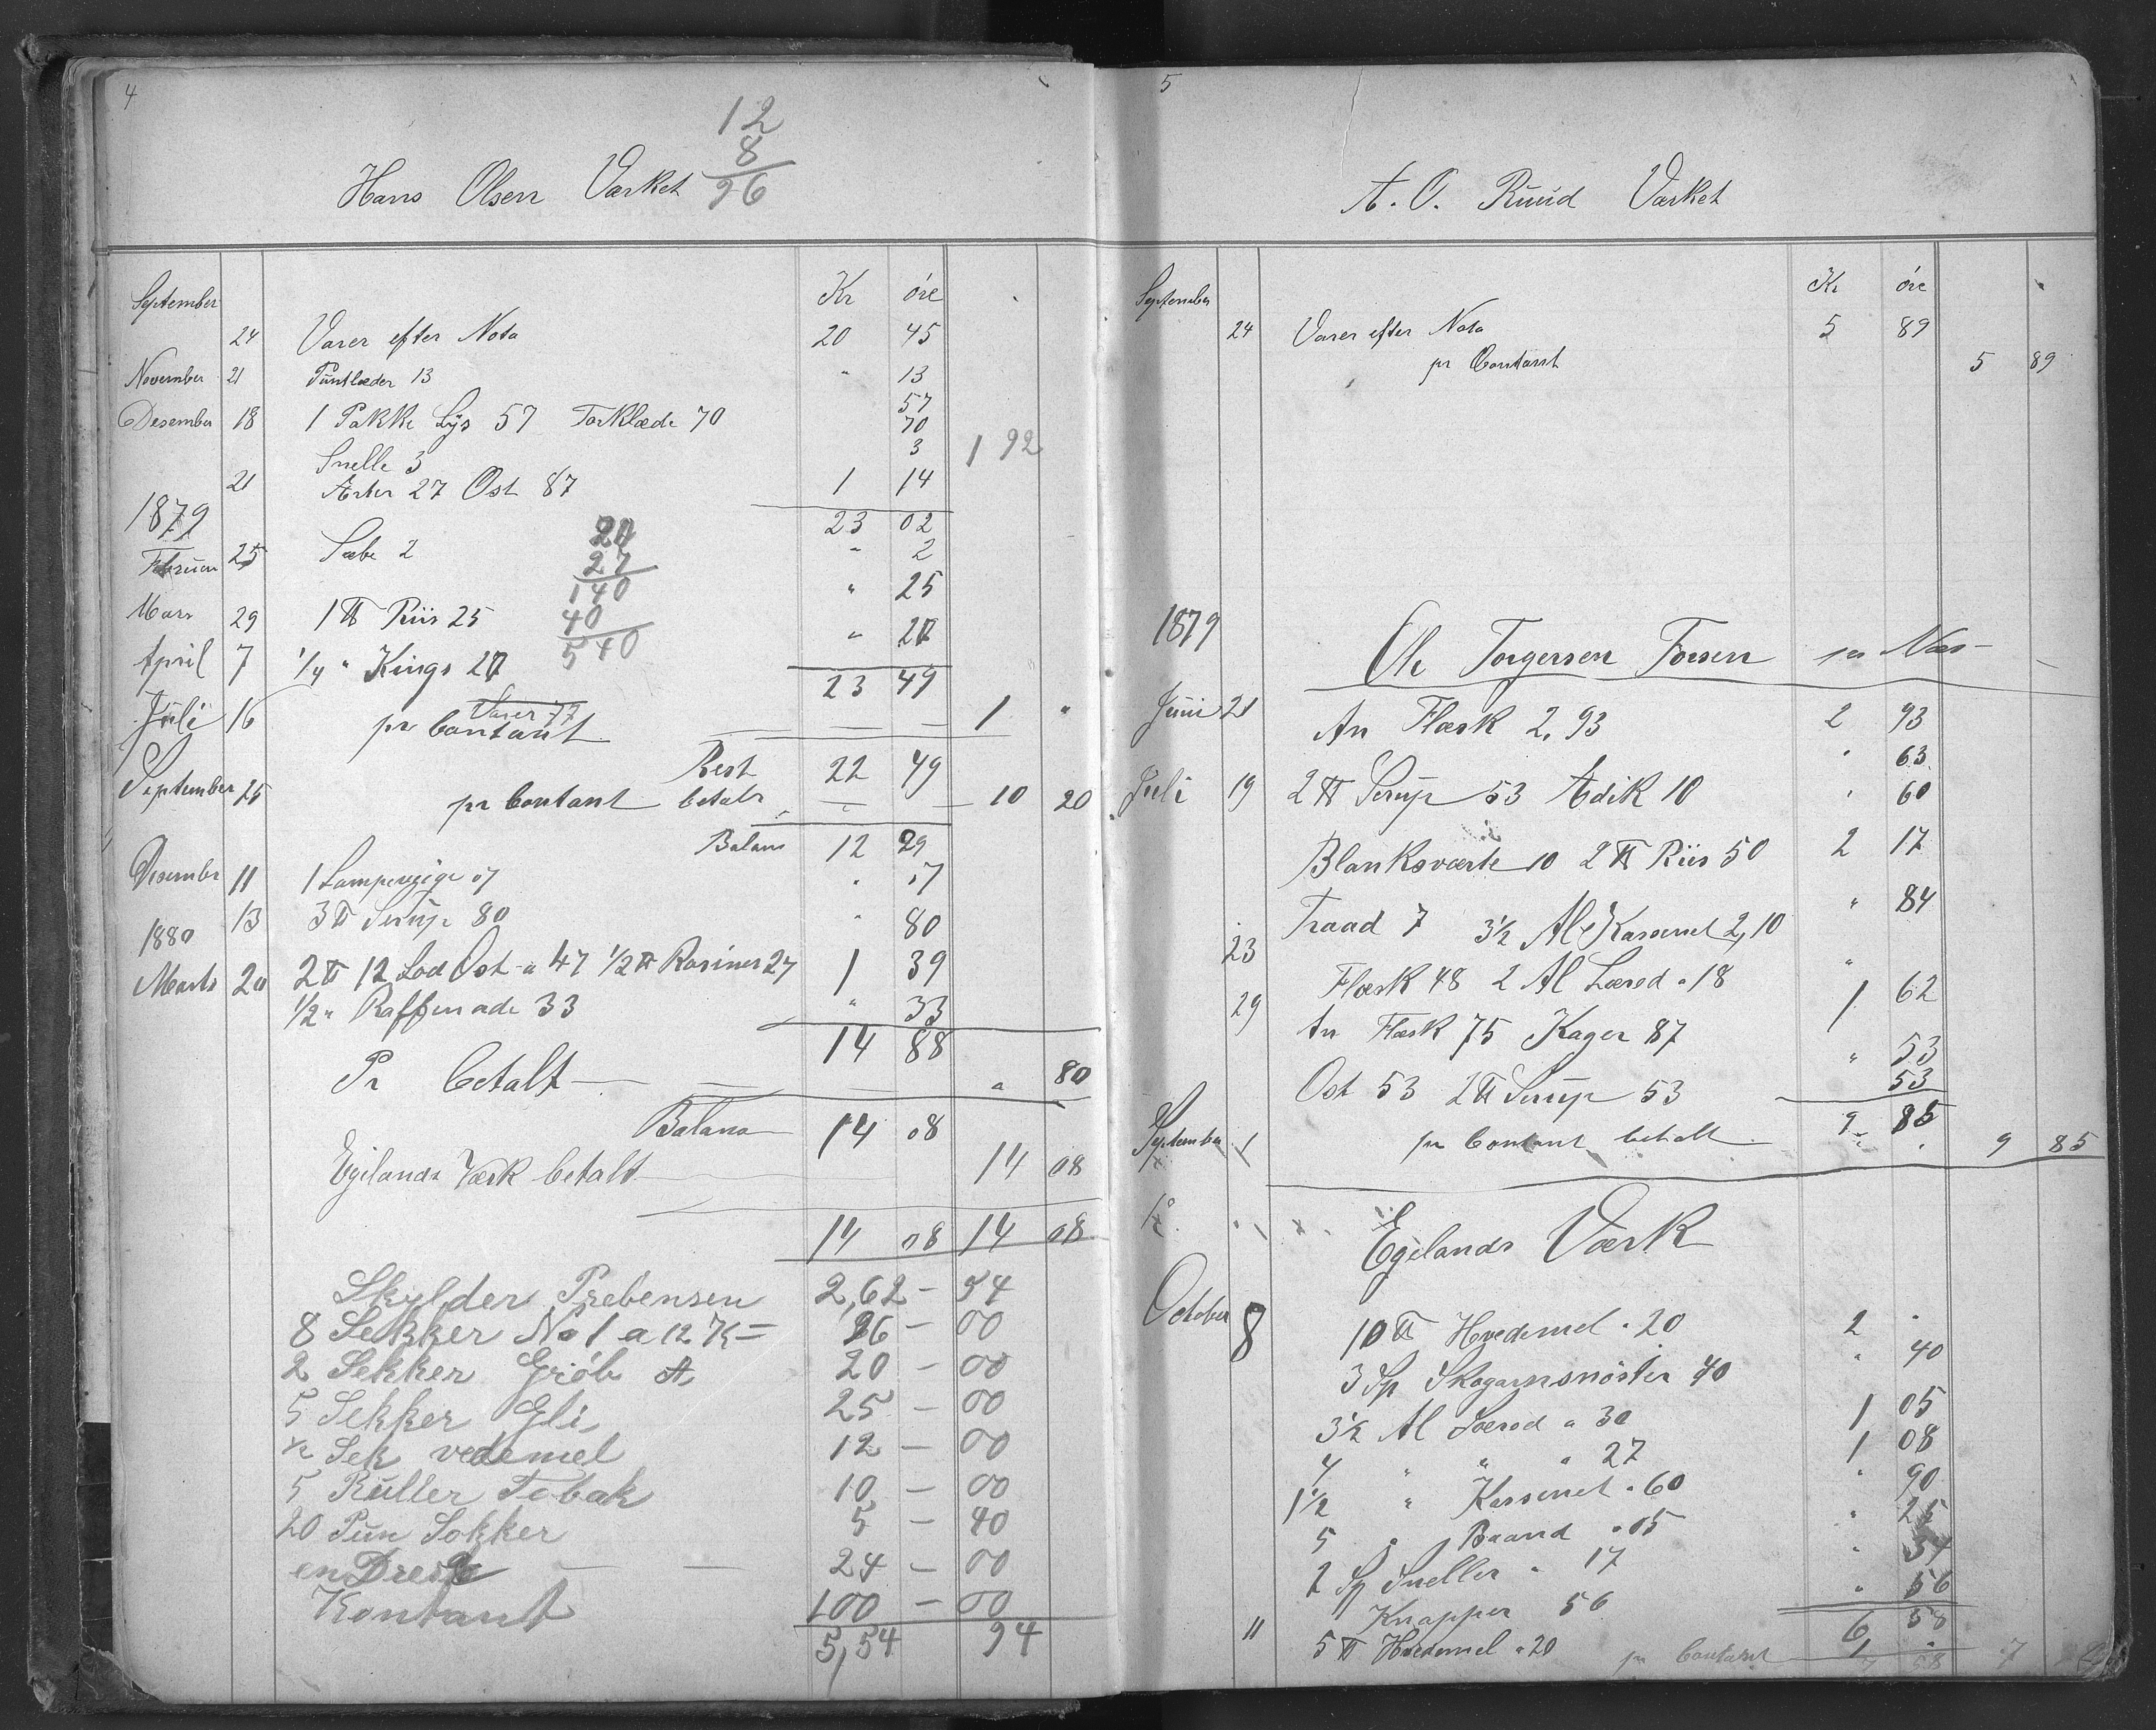 4
12
8
96
Hans Olsen Værket
September Kr øre
24 Varer efter Nota 20 45
November 21 Puntlæder 13 " 13
Desember 18 1 Pakke Lys 57 Tørklæde 70 57
70
Snelle 3 3 1 92
21 Ærter 27 Ost 87 1 14
1879 23 02
Februar 25 Sæbe 2 " 2
20
27
140
40
540
Mars 29 1 ℔ Riis 25 " 25
April 7 1/4 " Kings 20 " 20
23 49
Varer 77
Juli 16 pr Contant 1 "
Rest 22 49
September 25 pr Contant betalt 10 20
Balans 12 29
Desember 11 1 Lampevæge 07 " 07
13 3 ℔ Sirup 80 " 80
1880
Marts 20 2 ℔ 12 Lod Ost a 47 1/2 ℔ Rosiner 27 1 39
1/2 " Raffinade 33 " 33
14 88
Pr betalt " 80
Balans 14 08
Egelands Værk betalt 14 08
14 08 14 08
Skylder Prebensen 2,62 - 54
8 Sekker No 1 a 12 K = 96 - 00
2 Sekker Grób A 20 - 00
5 Sekker Gli 25 - 00
1/2 Sek vedemel 12 - 00
5 Ruller Tobak 10 - 00
20 Pun Sokker 5 - 40
en 24 - 00
Kontant 100 - 00
5,54 94
5
A. O. Ruud Værket
September Kr øre
24 Varer efter Nota 5 89
pr Contant 5 89
1879
Ole Torgersen Fossen pr Næs
Juni 21 An Flæsk 2,93 2 93
Juli 19 2 ℔ Sirup 53 Edik 10 " 63
Blanksværte 10 2 ℔ Riis 50 " 60
Traad 7 3 1/2 Al Karsemet 2,10 2 17
23 Flæsk 48 2 Al Læred a 18 " 84
29 An Flæsk 75 Kager 87 1 62
Ost 53 2 ℔ Sirup 53 " 53
53
9 85
September 1 pr Contant betalt 9 85
Egelands Værk
October 8 10 ℔ Hvedemel a 20 2 "
3 Sp Skogarnsnøster 40 " 40
3 1/2 Al Læred a 30 1 05
4 " " a 27 1 08
1 1/2 " Karsemet a 60 " 90
5 " Baand a 05 " 25
2 Sp Sneller a 17 " 34
Knapper 56 " 56
6 58
11 5 ℔ Hvedemel a 20 1 "
pr Contant 7 58 7